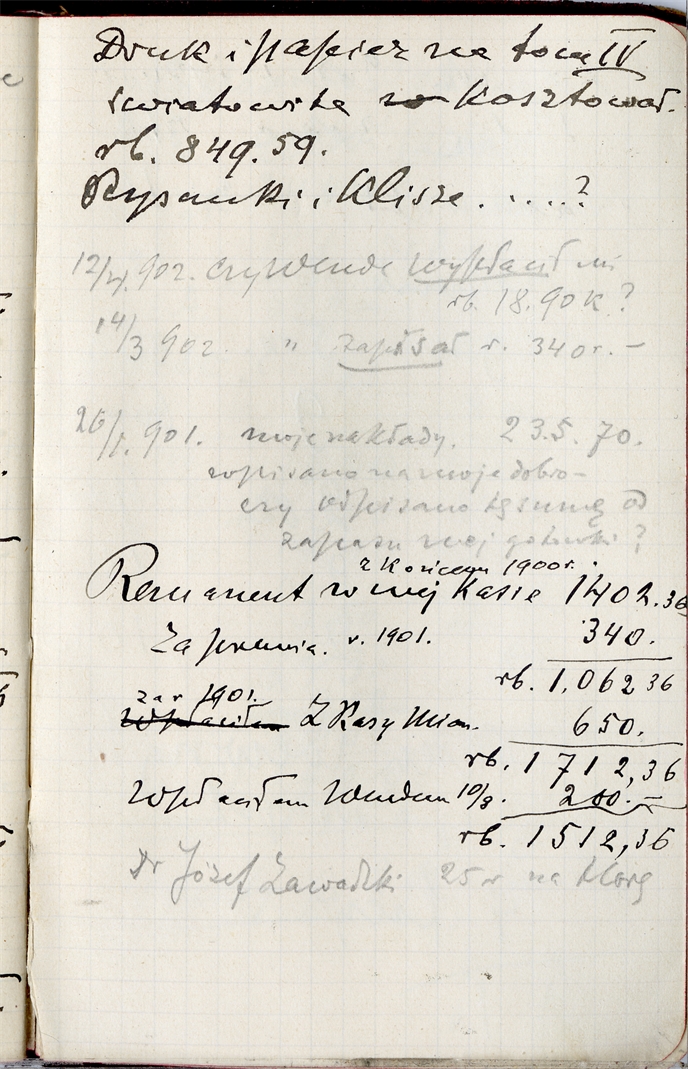 Druk i papier na tom IV
Światowita w kosztował.
rb. 849.59.
Rysunki i Klisze. ....?
12/IV. 902. czy Wende wypłacił mi
rb. 18.90 k?
14/3 902. " zapisał r. 340 r. –
26/I. 901. moje nakłady. 235. 70.
wpisano na moje dobro –
czy odpisano tę sumę od
zapasu mej gotówki?
z Końcem 1900 r.
Remanent w mej Kasie 1402.36
Za r. 1901. 340.
rb. 1,062 36
za r 1901.
Wpłaciłem Z Kasy Mian. 650.
rb. 1712,36
Wpłaciłem Wendem 10/3. 200. –
rb. 1512,36
Dr Józef Zawadzki 25 r na